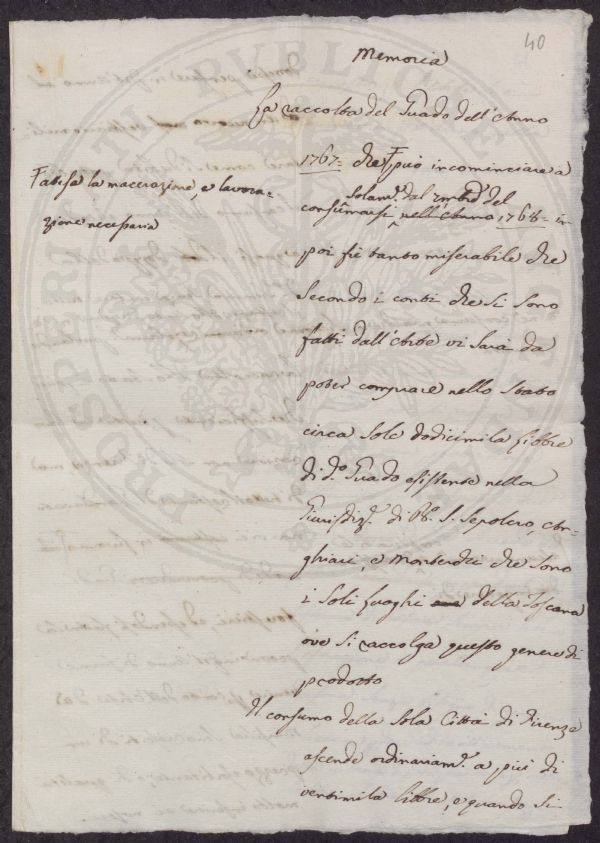 40
Memoria
La raccolta del Guado dell'Anno
1767: che può incominciare a
Fattesa la macerazione, e lavora-
zione necessaria
solam.e dal
del
consumarsi nell'Anno 1768: in
poi fù tanto miserabile che
secondo i conti che si sono
fatti dall'Arte vi sarà da
poter comprare nello Stato
circa sole dodicimila libbre
di d.o Guado esistente nella
Giurisdiz.e di S. Sepolcro, An-
ghiari, e Monterchi che sono
i soli luoghi della Toscana
ove si raccolga questo genere di
prodotto
Il consumo della sola Città di Firenze
ascende ordinariam.e a più di
ventimila libbre, e quando si
PROSPERITATI PVBLICAE